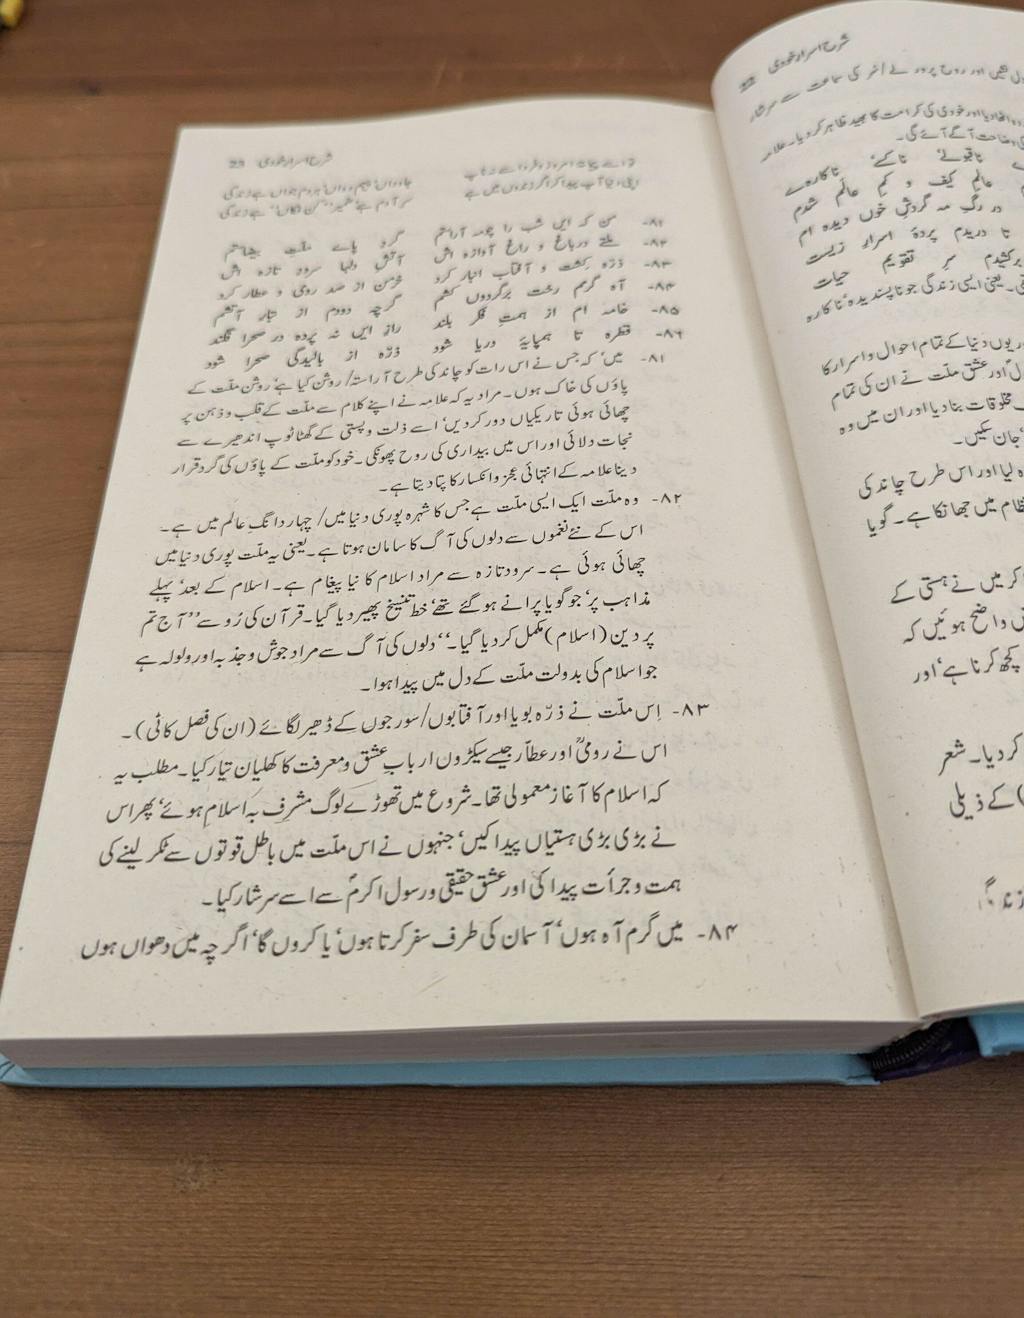 شرح اسرارِ خودی
تو اسے پیمانۂ امروز و فردا سے نہ ناپ جاوداں، پیہم دواں، ہر دم جواں ہے زندگی
اپنی دنیا آپ پیدا کر اگر زندوں میں ہے سرِ آدم ہے ضمیرِ ’’کن فکاں‘‘ ہے زندگی
۸۱- من کہ ایں شب را چو مہ آراستم گردِ پائے ملتِ بیضاستم
۸۲- ملتے در باغ و راغ آوازہ اش آتشِ دلہا سرودِ تازہ اش
۸۳- ذرّہ کِشت و آفتاب انبار کرد خرمن از صد رومی و عطار کرد
۸۴- آہِ گرمم رخت برگردوں کشم گرچہ دودم از تبارِ آتشم
۸۵- خامہ ام از ہمتِ فکرِ بلند راز ایں نہ پردہ در صحرا فگند
۸۶- قطرہ تا ہمپایۂ دریا شود ذرّہ از بالیدگی صحرا شود
۸۱- میں‘ کہ جس نے اس رات کو چاند کی طرح آراستہ/ روشن کیا ہے‘ روشن ملّت کے
پاؤں کی خاک ہوں۔ مراد یہ کہ علامہ نے اپنے کلام سے ملّت کے قلب و ذہن پر
چھائی ہوئی تاریکیاں دور کر دیں‘ اسے ذلت و پستی کے گھٹا ٹوپ اندھیرے سے
نجات دلائی اور اس میں بیداری کی روح پھونکی۔ خود کو ملّت کے پاؤں کی گرد قرار
دینا علامہ کے انتہائی عجز و انکسار کا پتا دیتا ہے۔
۸۲- وہ ملّت ایک ایسی ملّت ہے جس کا شہرہ پوری دنیا میں/ چہار دانگِ عالم میں ہے۔
اس کے نئے نغموں سے دلوں کی آگ کا سامان ہوتا ہے۔ یعنی یہ ملّت پوری دنیا میں
چھائی ہوئی ہے۔ سرودِ تازہ سے مراد اسلام کا نیا پیغام ہے۔ اسلام کے بعد‘ پہلے
مذاہب پر‘ جو گویا پرانے ہو گئے تھے‘ خطِ تنسیخ پھیر دیا گیا۔ قرآن کی رُو سے ’’آج تم
پر دین (اسلام) مکمل کر دیا گیا۔‘‘ دلوں کی آگ سے مراد جوش و جذبہ اور ولولہ ہے
جو اسلام کی بدولت ملّت کے دل میں پیدا ہوا۔
۸۳- اِس ملّت نے ذرّہ بویا اور آفتابوں/ سورجوں کے ڈھیر لگائے (ان کی فصل کاٹی)۔
اس نے رومیؒ اور عطارؒ جیسے سیکڑوں اربابِ عشق و معرفت کا کھلیان تیار کیا۔ مطلب یہ
کہ اسلام کا آغاز معمولی تھا۔ شروع میں تھوڑے لوگ مشرف بہ اسلام ہوئے‘ پھر اس
نے بڑی بڑی ہستیاں پیدا کیں‘ جنہوں نے اس ملّت میں باطل قوتوں سے ٹکر لینے کی
ہمت و جرأت پیدا کی اور عشقِ حقیقی و رسول اکرمؐ سے اسے سرشار کیا۔
۸۴- میں گرم آہ ہوں‘ آسمان کی طرف سفر کرتا ہوں‘ یا کروں گا‘ اگرچہ میں دھواں ہوں
شرح اسرارِ خودی
اور روح پرور نے آخر کی سماعت سے سرشار
اور خودی کی کرامت کا بھید ظاہر کر دیا۔ علامہ
وضاحت آگے آئے گی۔
ناقبولے ناکسے ناکارہ اے
عالمِ کیف و کمِ عالم شدم
در رگِ مہ گردشِ خوں دیدہ ام
تا دریدم پردۂ اسرارِ زیست
برکشیدم سرِ تقویمِ حیات
یعنی ایسی زندگی جو ناپسندیدہ‘ ناکارہ
دنیا کے تمام احوال و اسرار کا
اور عشقِ ملّت نے ان کی تمام
مخلوقات بنا دیا اور ان میں وہ
جان سکیں۔
لیا اور اس طرح چاند کی
نظام میں جھانکا ہے۔ گویا
کر میں نے ہستی کے
واضح ہوئیں کہ
کچھ کرنا ہے‘ اور
کر دیا۔ شعر
کے ذیلی